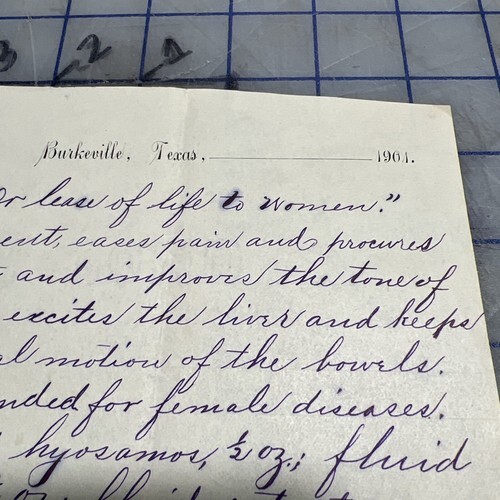 3 2 1
Burkeville, Texas, 1901.
Or lease of life to women."
ent, eases pain and procures
and improves the tone of
excites the liver and keeps
al motion of the bowels.
nded for female diseases.
hyosamos, ½ oz.; fluid